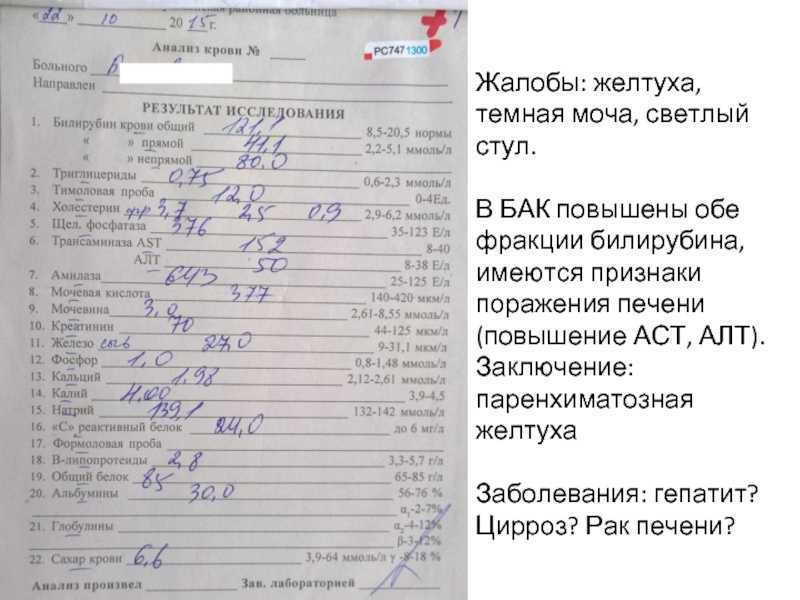 районная больница
«22» 10 2015 г.
РС747 1300
Анализ крови №
Больного
Направлен
РЕЗУЛЬТАТ ИССЛЕДОВАНИЯ
1. Билирубин крови общий 121,1 8,5-20,5 нормы
« » прямой 41,1 2,2-5,1 ммоль/л
« » непрямой 80.0
2. Триглицериды 0,75 0,6-2,3 ммоль/л
3. Тимоловая проба 12,0 0-4Ед.
4. Холестерин 3,7 2,5 0,9 2,9-6,2 ммоль/л
5. Щел. фосфатаза 376 35-123 Е/л
6. Трансаминаза AST 152 8-40
АЛТ 50 8-38 Е/л
7. Амилаза 643 25-125 Е/л
8. Мочевая кислота 377 140-420 мкм/л
9. Мочевина 3,0 2,61-8,55 ммоль/л
10. Креатинин 70 44-125 мкм/л
11. Железо сыв 27,0 9-31,1 мкм/л
12. Фосфор 1,0 0,8-1,48 ммоль/л
13. Кальций 1,98 2,12-2,61 ммоль/л
14. Калий 4,00 3,9-4,5
15. Натрий 139,1 132-142 ммоль/л
16. «С» реактивный белок 24,0 до 6 мг/л
17. Формоловая проба
18. В-липопротеиды 2,8 3,3-5,7 г/л
19. Общий белок 85 65-85 г/л
20. Альбумины 30,0 56-76 %
α₁-2-7%
21. Глобулины α₂-4-12%
β-3-12%
22. Сахар крови 6,6 3,9-64 ммоль/л γ -8-18 %
Анализ произвел Зав. лабораторией
Жалобы: желтуха,
темная моча, светлый
стул.
В БАК повышены обе
фракции билирубина,
имеются признаки
поражения печени
(повышение АСТ, АЛТ).
Заключение:
паренхиматозная
желтуха
Заболевания: гепатит?
Цирроз? Рак печени?